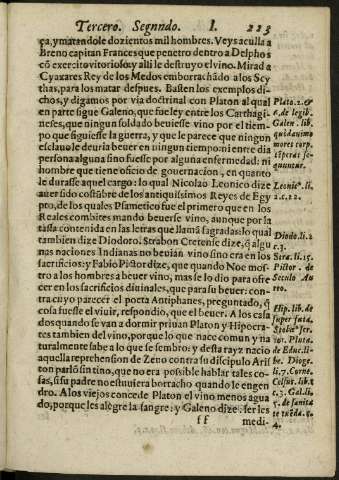 Tercero. Segundo. I. 223
ça, y matandole dozientos mil hombres. Veys aculla a
Breno capitan Frances que penetro dentro a Delphos
cõ exercito vitorioso, y alli le destruyo el vino. Mirad a
Cyaxares Rey de los Medos emborrachãdo a los Scy
thas, para los matar despues. Basten los exemplos di-
chos, y digamos por via doctrinal con Platon al qual
en parte sigue Galeno, que fue ley entre los Carthagi-
neses, que ningun soldado beuiesse vino por el tiem-
po que siguiesse la guerra, y que le parece que ningun
esclauo le deuria beuer en ningun tiempo: ni entre dia
persona alguna sino fuesse por alguna enfermedad: ni
hombre que tiene oficio de gouernacion, en quanto
le durasse aquel cargo: lo qual Nicolao Leonico dize
auer sido costũbre de los antiquissimos Reyes de Egy
pto, de los quales Psametico fue el primero que en los
Reales combites mandó beuerse vino, aunque por la
tassa contenida en las letras que llamã sagradas: lo qual
tambien dize Diodoro. Strabon Cretense dize, q̃ algu
nas naciones Indianas no beuian vino sino era en los
sacrificios: y Fabio Pictor dize, que quando Noe mos-
tro a los hombres a beuer vino, mas se lo dio para ofre
cer en los sacrificios diuinales, que para su beuer: con-
tra cuyo parecer el poeta Antiphanes, preguntado, q̃
cosa fuesse el viuir, respondio, que el beuer. A los casa
dos quando se van a dormir priuan Platon y Hipocra-
tes tambien del vino, porque lo que nace comun y na
turalmente sabe a lo que se sembro: y desta rayz nacio
aquella reprehension de Zeno contra su discipulo Aris
ton parlõ sin tino, que no era possible hablar tales co-
sas, si su padre no estuuiera borracho quando le engen
dro. A los viejos concede Platon el vino menos agua
do, porque les alegre la sangre: y Galeno dize, ser les
ff medi-
Plato. 2. &
6. de legib.
Galen. lib.
quòd animi
mores corp.
tẽperat. se-
quuntur.
Leonic°. li.
2. c. 22.
Diodo. li. 2
c. 3.
Stra. li. 15.
Pictor. de
Seculo Au
reo.
lib. de
super
Stobę°. ser
ior. Pluta.
de Educ. li-
be. Dioge.
li. 7. Corne.
Celsus. lib. 1
c. 3. Gal. li.
5. de sanita
te tuẽda. c.
4.